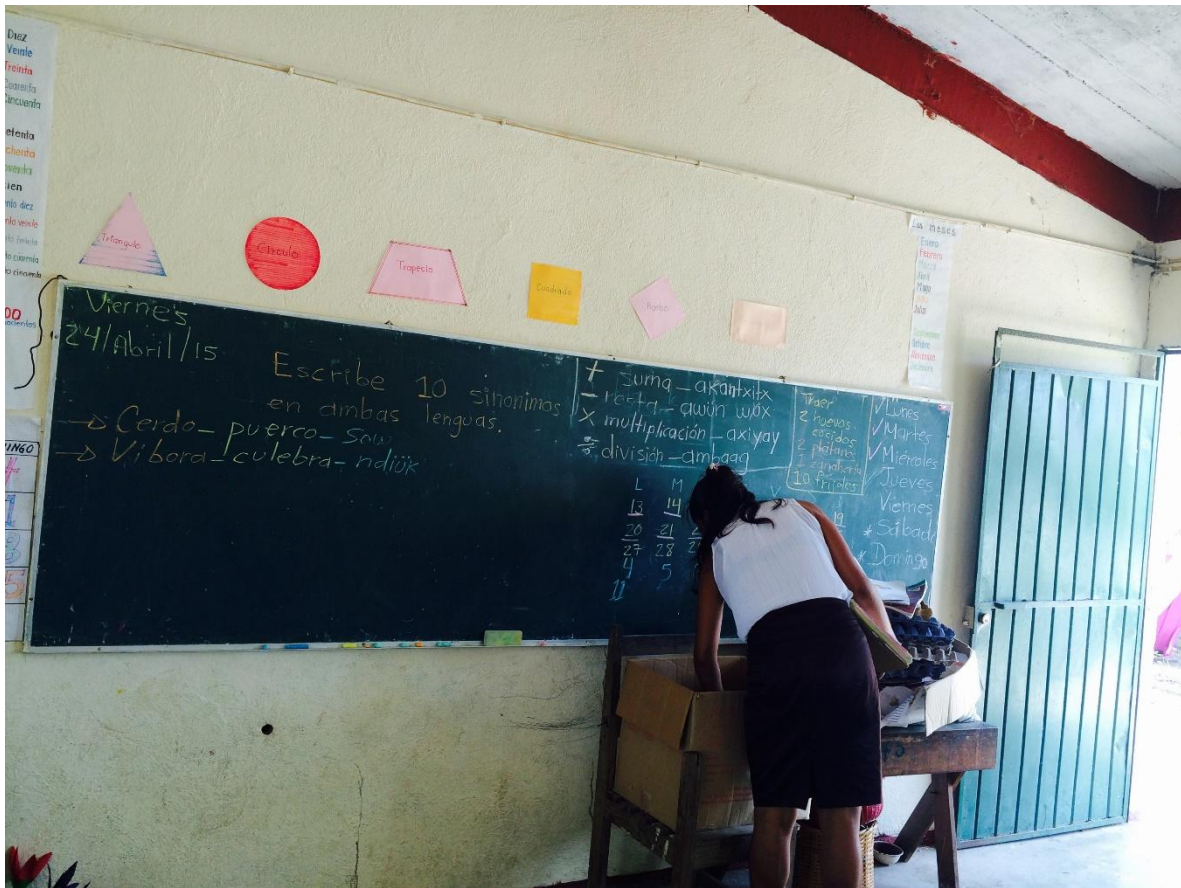 Diez
Veinte
Treinta
Cuarenta
Cincuenta
etenta
chenta
oventa
ien
nto diez
nto veinte
nto treinta
to cuarenta
o cincuenta
00
ocientos
INGO
Triangulo
Circulo
Trapecio
Cuadrado
Rombo
Los meses
Enero
Febrero
Marzo
Abril
Mayo
Julio
Septiembre
Octubre
Noviembre
Diciembre
Viernes
24/Abril/15
Escribe 10 sinonimos
en ambas lenguas.
→ Cerdo - puerco - sow
→ Vibora - culebra - ndiük
+ suma - akantxitx
- resta - awün wüx
x multiplicación - axiyay
÷ división - ambaag
L M
13 14
20 21
27 28
4 5
11
19
Traer
2 huevos
cocidos
2 platano
1 zanahoria
10 frijoles
✓ Lunes
✓ Martes
✓ Miércoles
Jueves
Viernes
* Sábado
* Domingo